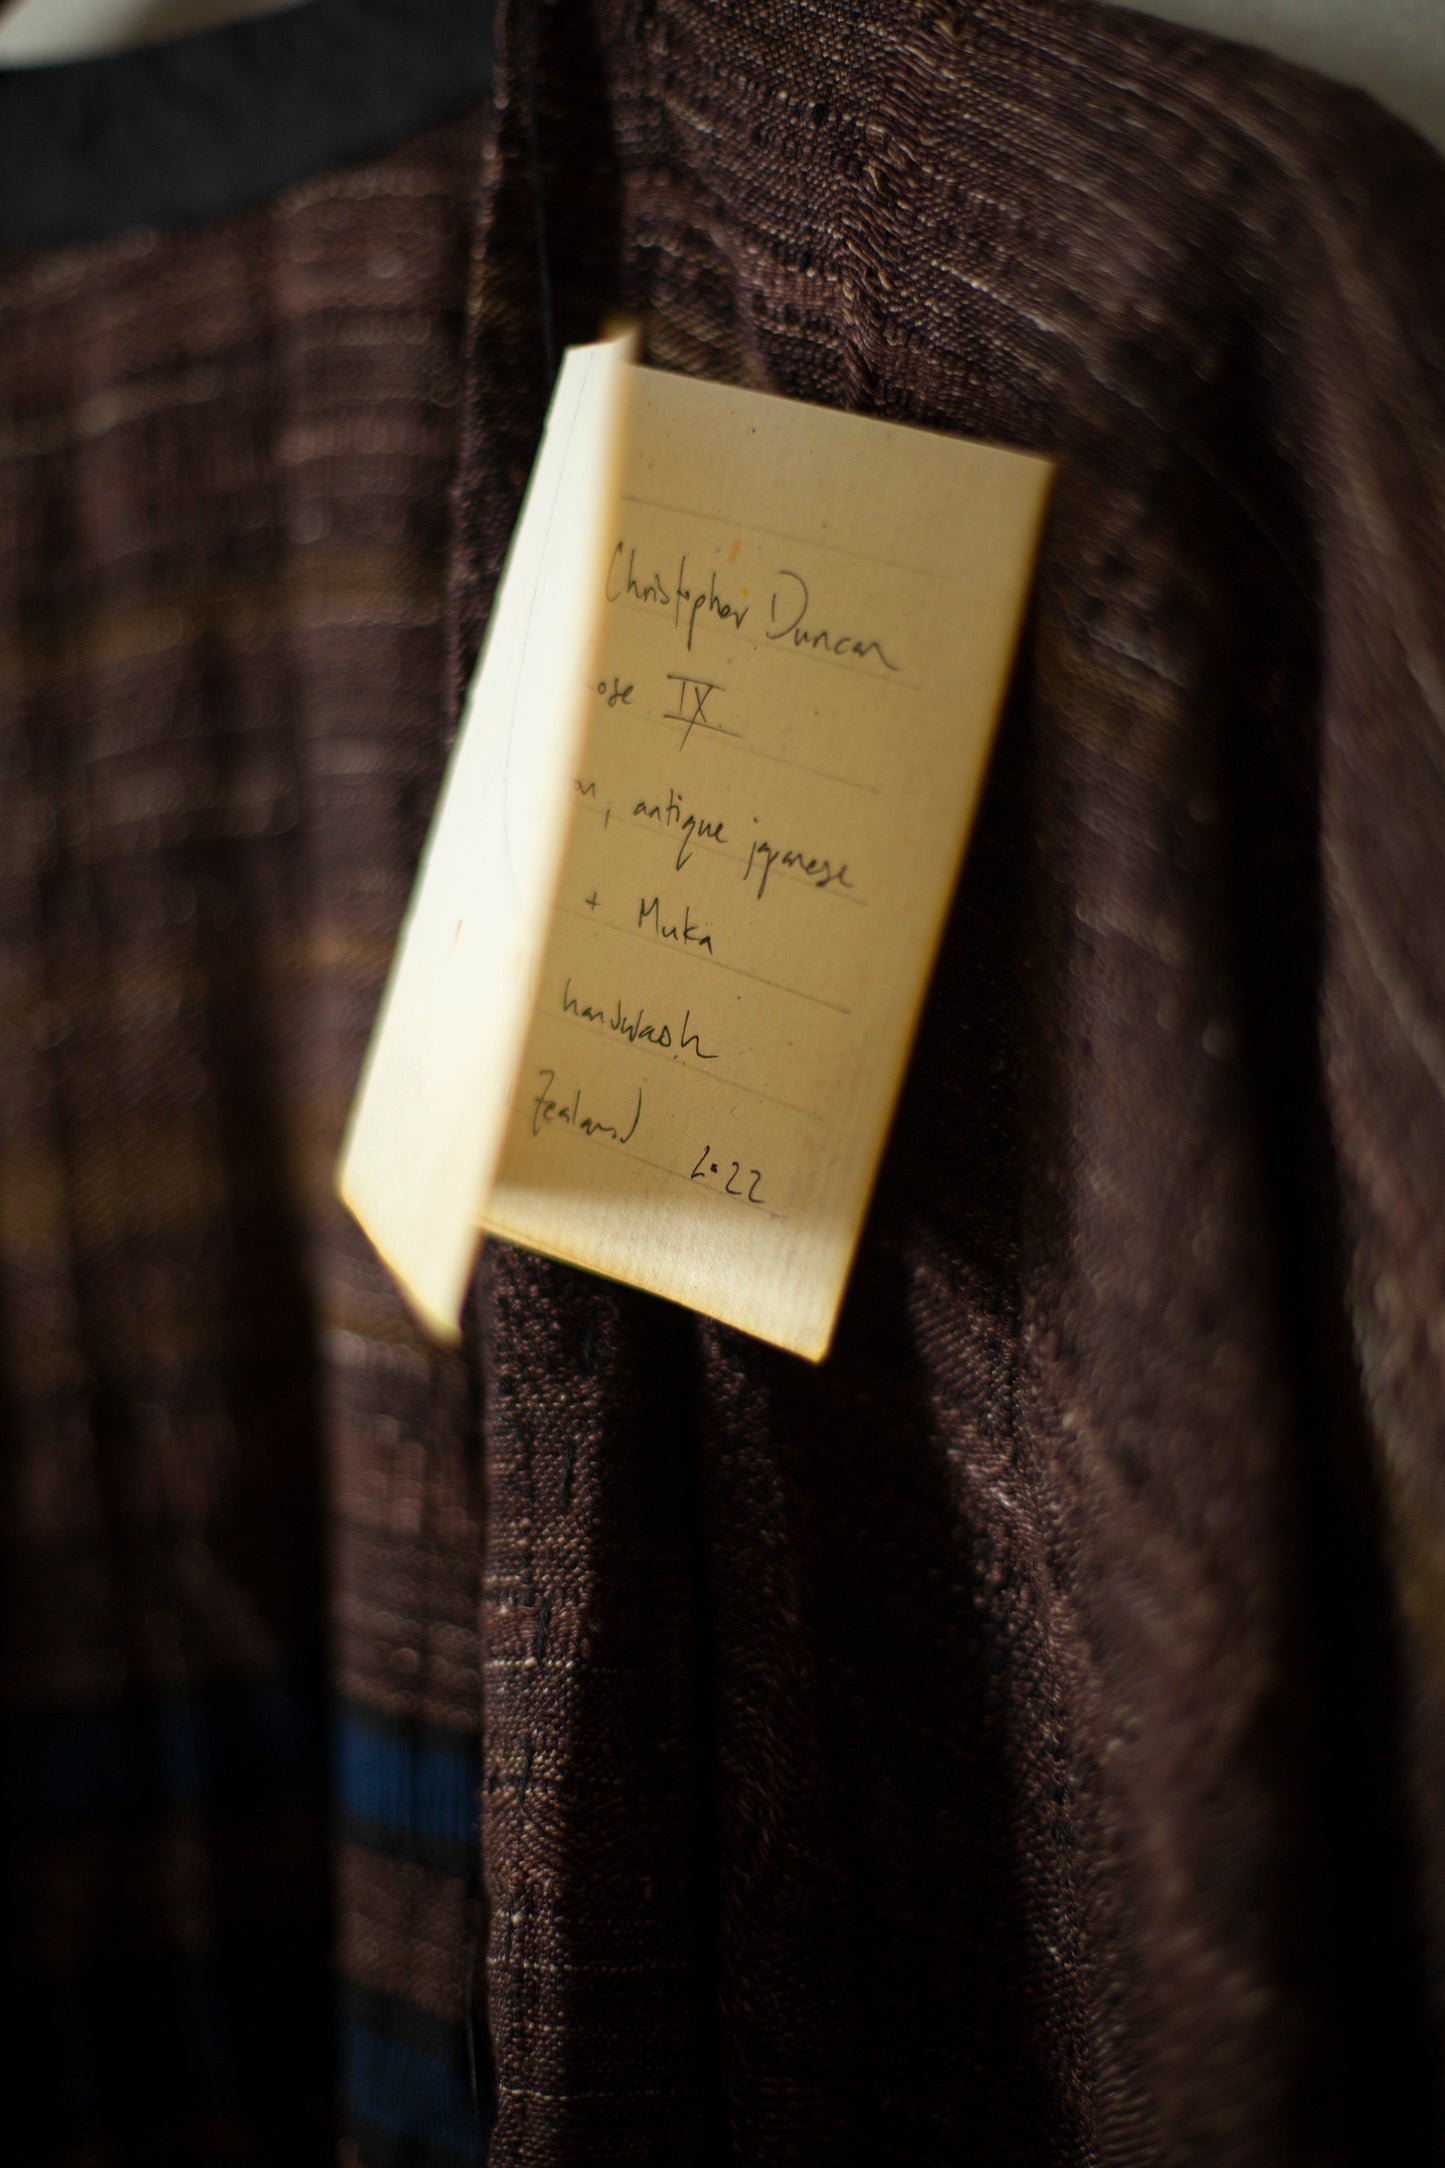 Christopher Duncan
ose IX
on, antique japanese
+ Muka
handwash
Zealand
2022